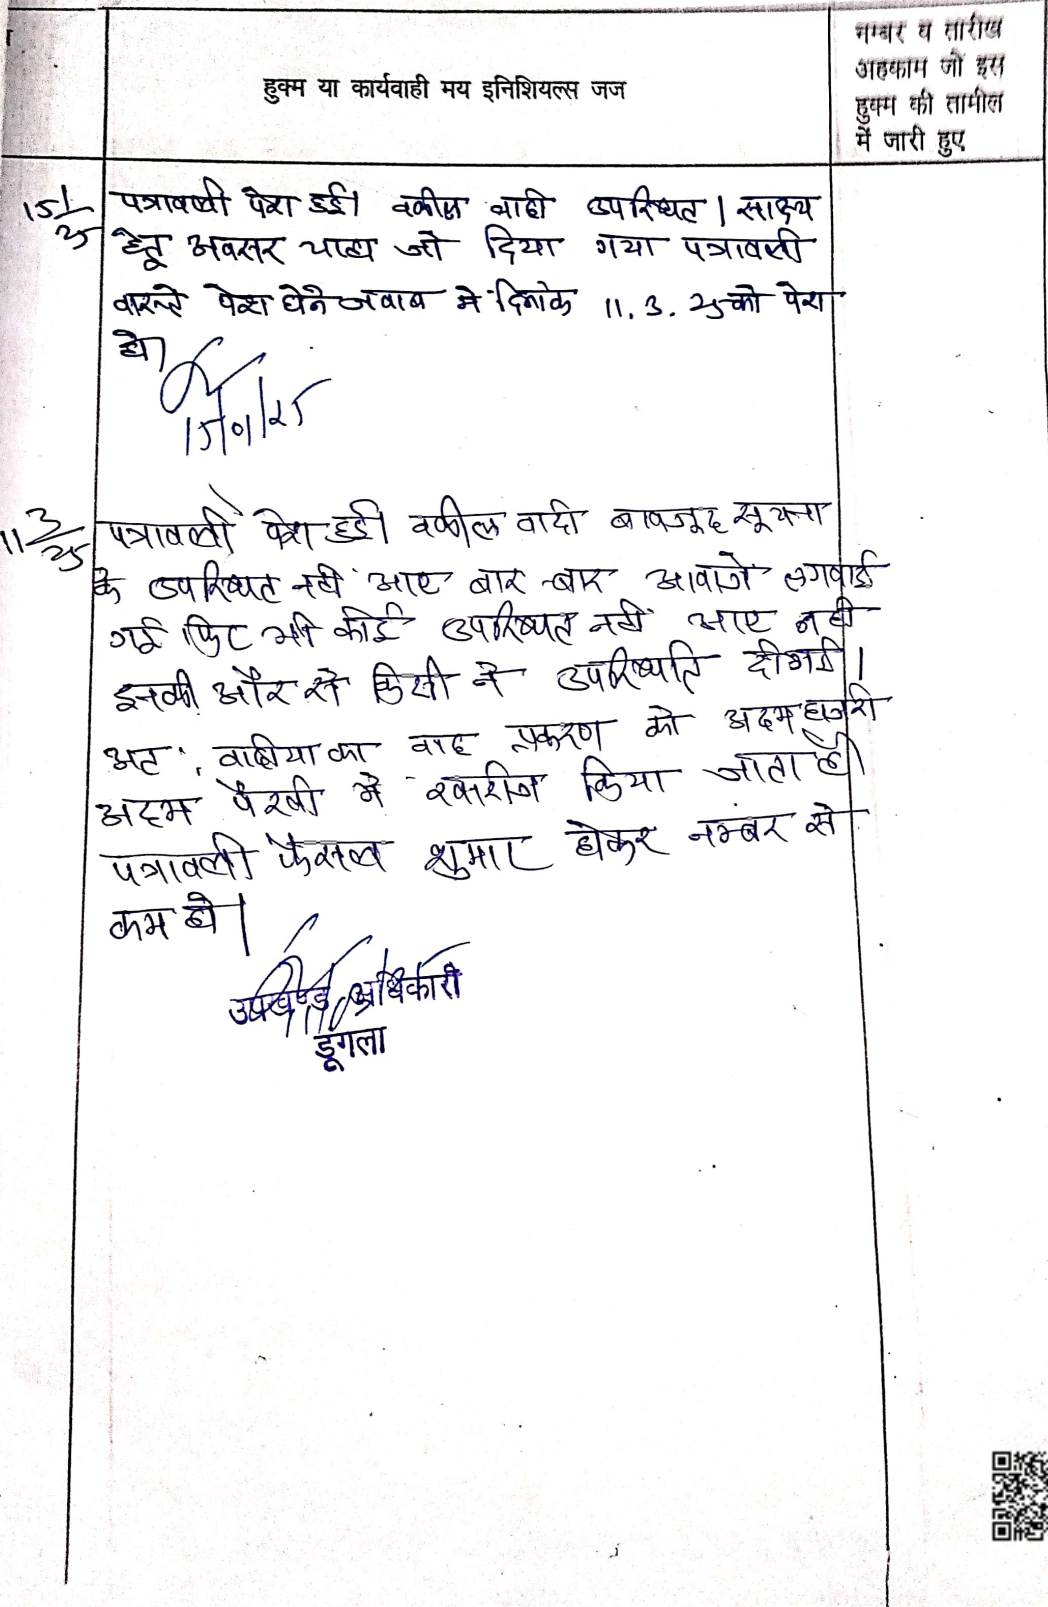 हुक्म या कार्यवाही मय इनिशियल्स जज
नम्बर व तारीख
अहकाम जो इस
हुक्म की तामील
में जारी हुए
15/1/25 पत्रावली पेश हुई। वकील वादी उपस्थित। साक्ष्य
हेतू अवसर चाहा जो दिया गया पत्रावली
वास्ते पेश होने जवाब में दिनांक 11.3.25 को पेश
हो।
15/01/25
11/3/25 पत्रावली पेश हुई। वकील वादी बावजूद सूचना
के उपस्थित नहीं आए बार-बार आवाजे लगवाई
गई फिर भी कोई उपस्थित नहीं आए न ही
इनकी और से किसी ने उपस्थिति दी गई।
अतः वादीया का वाद प्रकरण को अदम हाजरी
अदम पैरवी में खारीज किया जाता है।
पत्रावली फैसल शुमार होकर नम्बर से
कम हो।
उपखण्ड अधिकारी
डूंगला